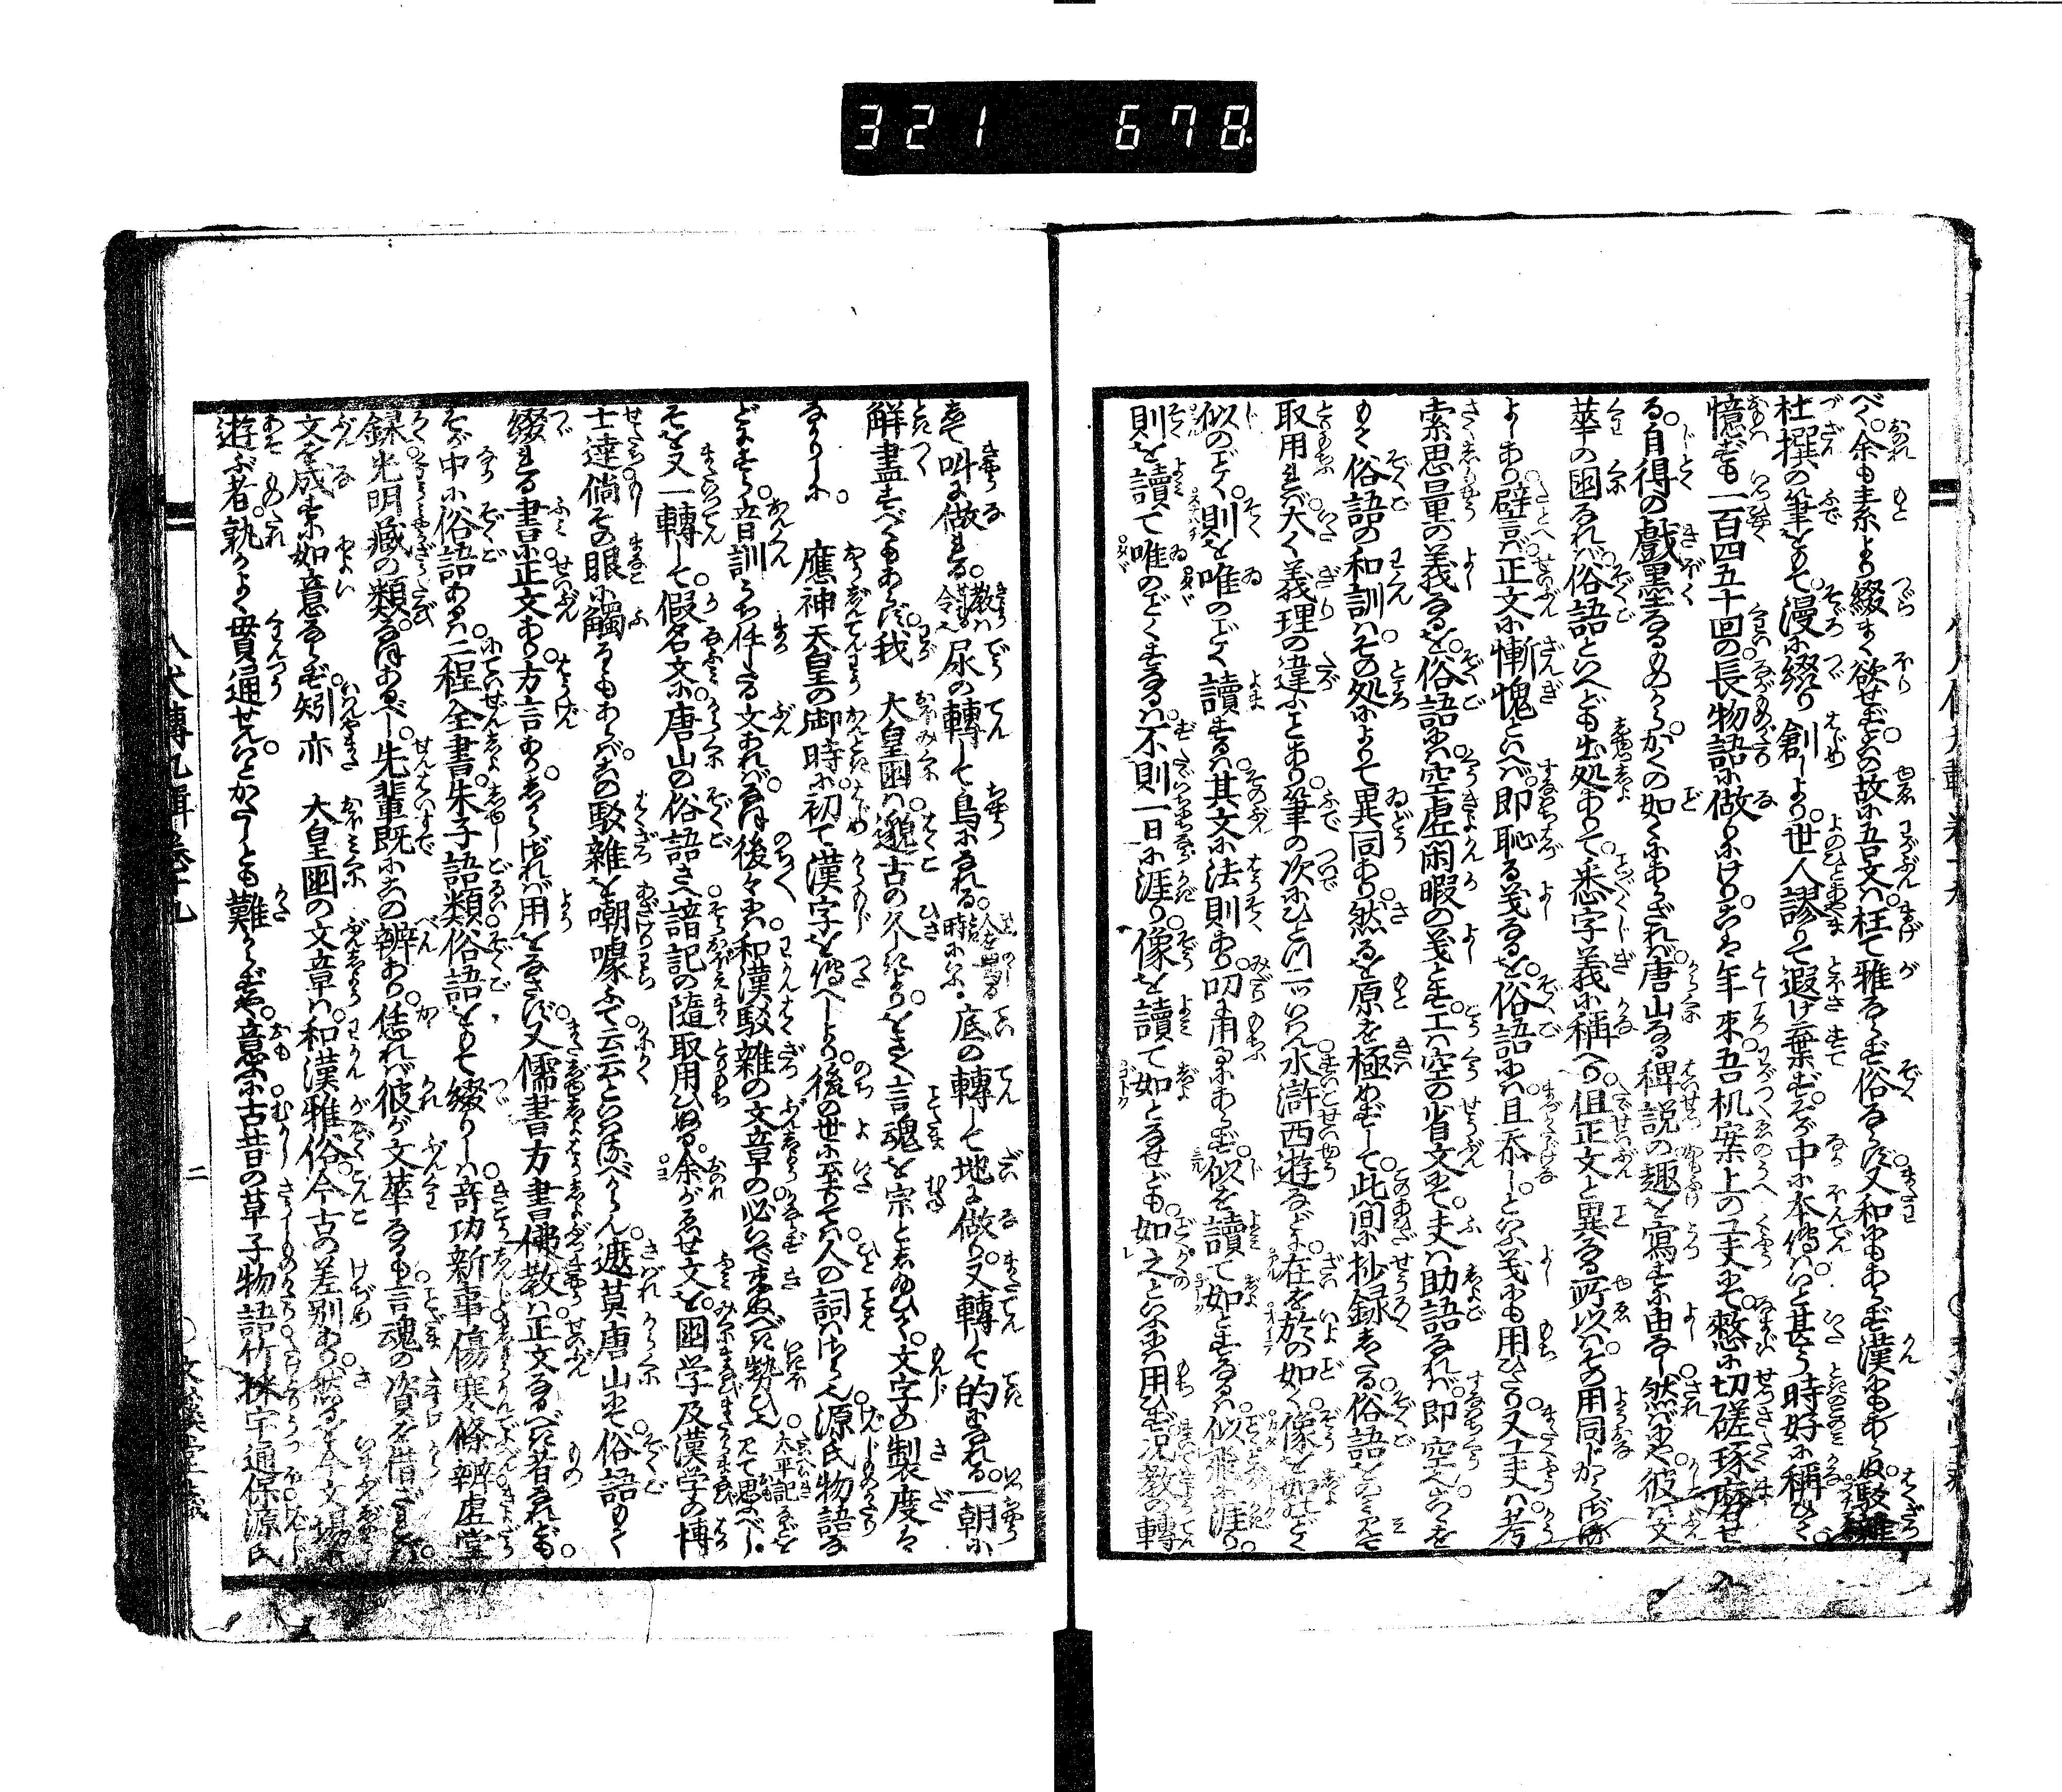 321 678
べく。余も素より綴まく欲せず。この故に吾文は。枉て雅ならず俗ならず。又和にもあらず漢にもあらぬ。駁雑
杜撰の筆をもて。漫に綴り創しより。世人謬りて遐け棄ず。そが中に本傳はいと甚う時好に稱ひて。
憶ずも一百四五十回の。長物語に做りにけり。こは年来吾机案上の工夫にて。憗に切磋琢磨せ
る。自得の戯墨なるのみから。かくの如くにあらざれば。唐山なる稗説の趣を寫すに由なし。然ばにや彼は文
華の国なれば。俗語といへども出処ありて。悉字義に稱へり。但正文と異なる所以は。その用同じからざる
よしあり。譬ば正文に慚愧といへば。即恥る義なるを。俗語には且忝しといふ義にも用ひたり。又工夫は考
索思量の義なるを。俗語には空虚閑暇の義とす。工は空の省文にて。夫は助語なれば。即空へこゝを
もて俗語の和訓は。その処によりて異同あり。然るを原を極めずして。此間に抄録したる俗語をのみえて
取用れば。大く義理の違ふことあり。筆の次にひとつ二ついはん。水滸西遊などに。在を於の如く。像を如のごとく
似のごとく。則を唯のごとく讀するは。其文に法則あり。叨に用るにあらず。似を讀て如とするは。似飛に涯り。
則を讀て唯のごとくするは。不則一日に涯り。像を讀て如となせども。如之といふには用ひず。況教の轉
して叫に做れる。教は令へ 尿の轉して鳥になれる。人を罵る時にいふ 底の轉して地に做り。又轉して的になれる。一朝に
解盡すべくもあらず。我 大皇国は。邈古の久しきより。をさ〳〵言魂を宗としぬひて。文字の製度は
なかりしに。 應神天皇の御時に。初て漢字を傳へしより。後の世に至りては。人の詞はさら也。源氏物語な
どにすら。音訓うち任したる文あれば。なほ後々には。和漢駁雑の文章の。必いで来ぬべき勢ひ也。京平盛衰記太平記などを見て思ふべし。
そを又一轉して。假名文に唐山の俗語さへ。諳記の隨取用ひぬる。余がゑせ文を。国学及漢学の博
士達。倘その眼に觸るゝもあらば。この駁雑を嘲噱ふて。云云といはるべからん。遮莫唐山にて俗語もて
綴れる書に。正文あり方言あり。しからざれば用をなさず。又儒書方書佛教は正文なるべき者なれども。
そが中に俗語あるは。二程全書。朱子語類。俗語をもて綴りしは。竒功新事。傷寒條辨。虚堂
録。光明蔵の類。なほあるべし。先輩既にこの辨あり。恁れば彼が文華なるも。言魂の資を借ざれば。
文を成すに如意ならず。矧亦 大皇国の文章は。和漢雅俗。今古の差別あり。然るを今文場に
遊ぶ者。孰かよく貫通せん。いとかたしとも難からずや。意ふに古昔の草子物語。竹採宇通保源氏
八犬傳九輯巻十九 二 文溪堂藏